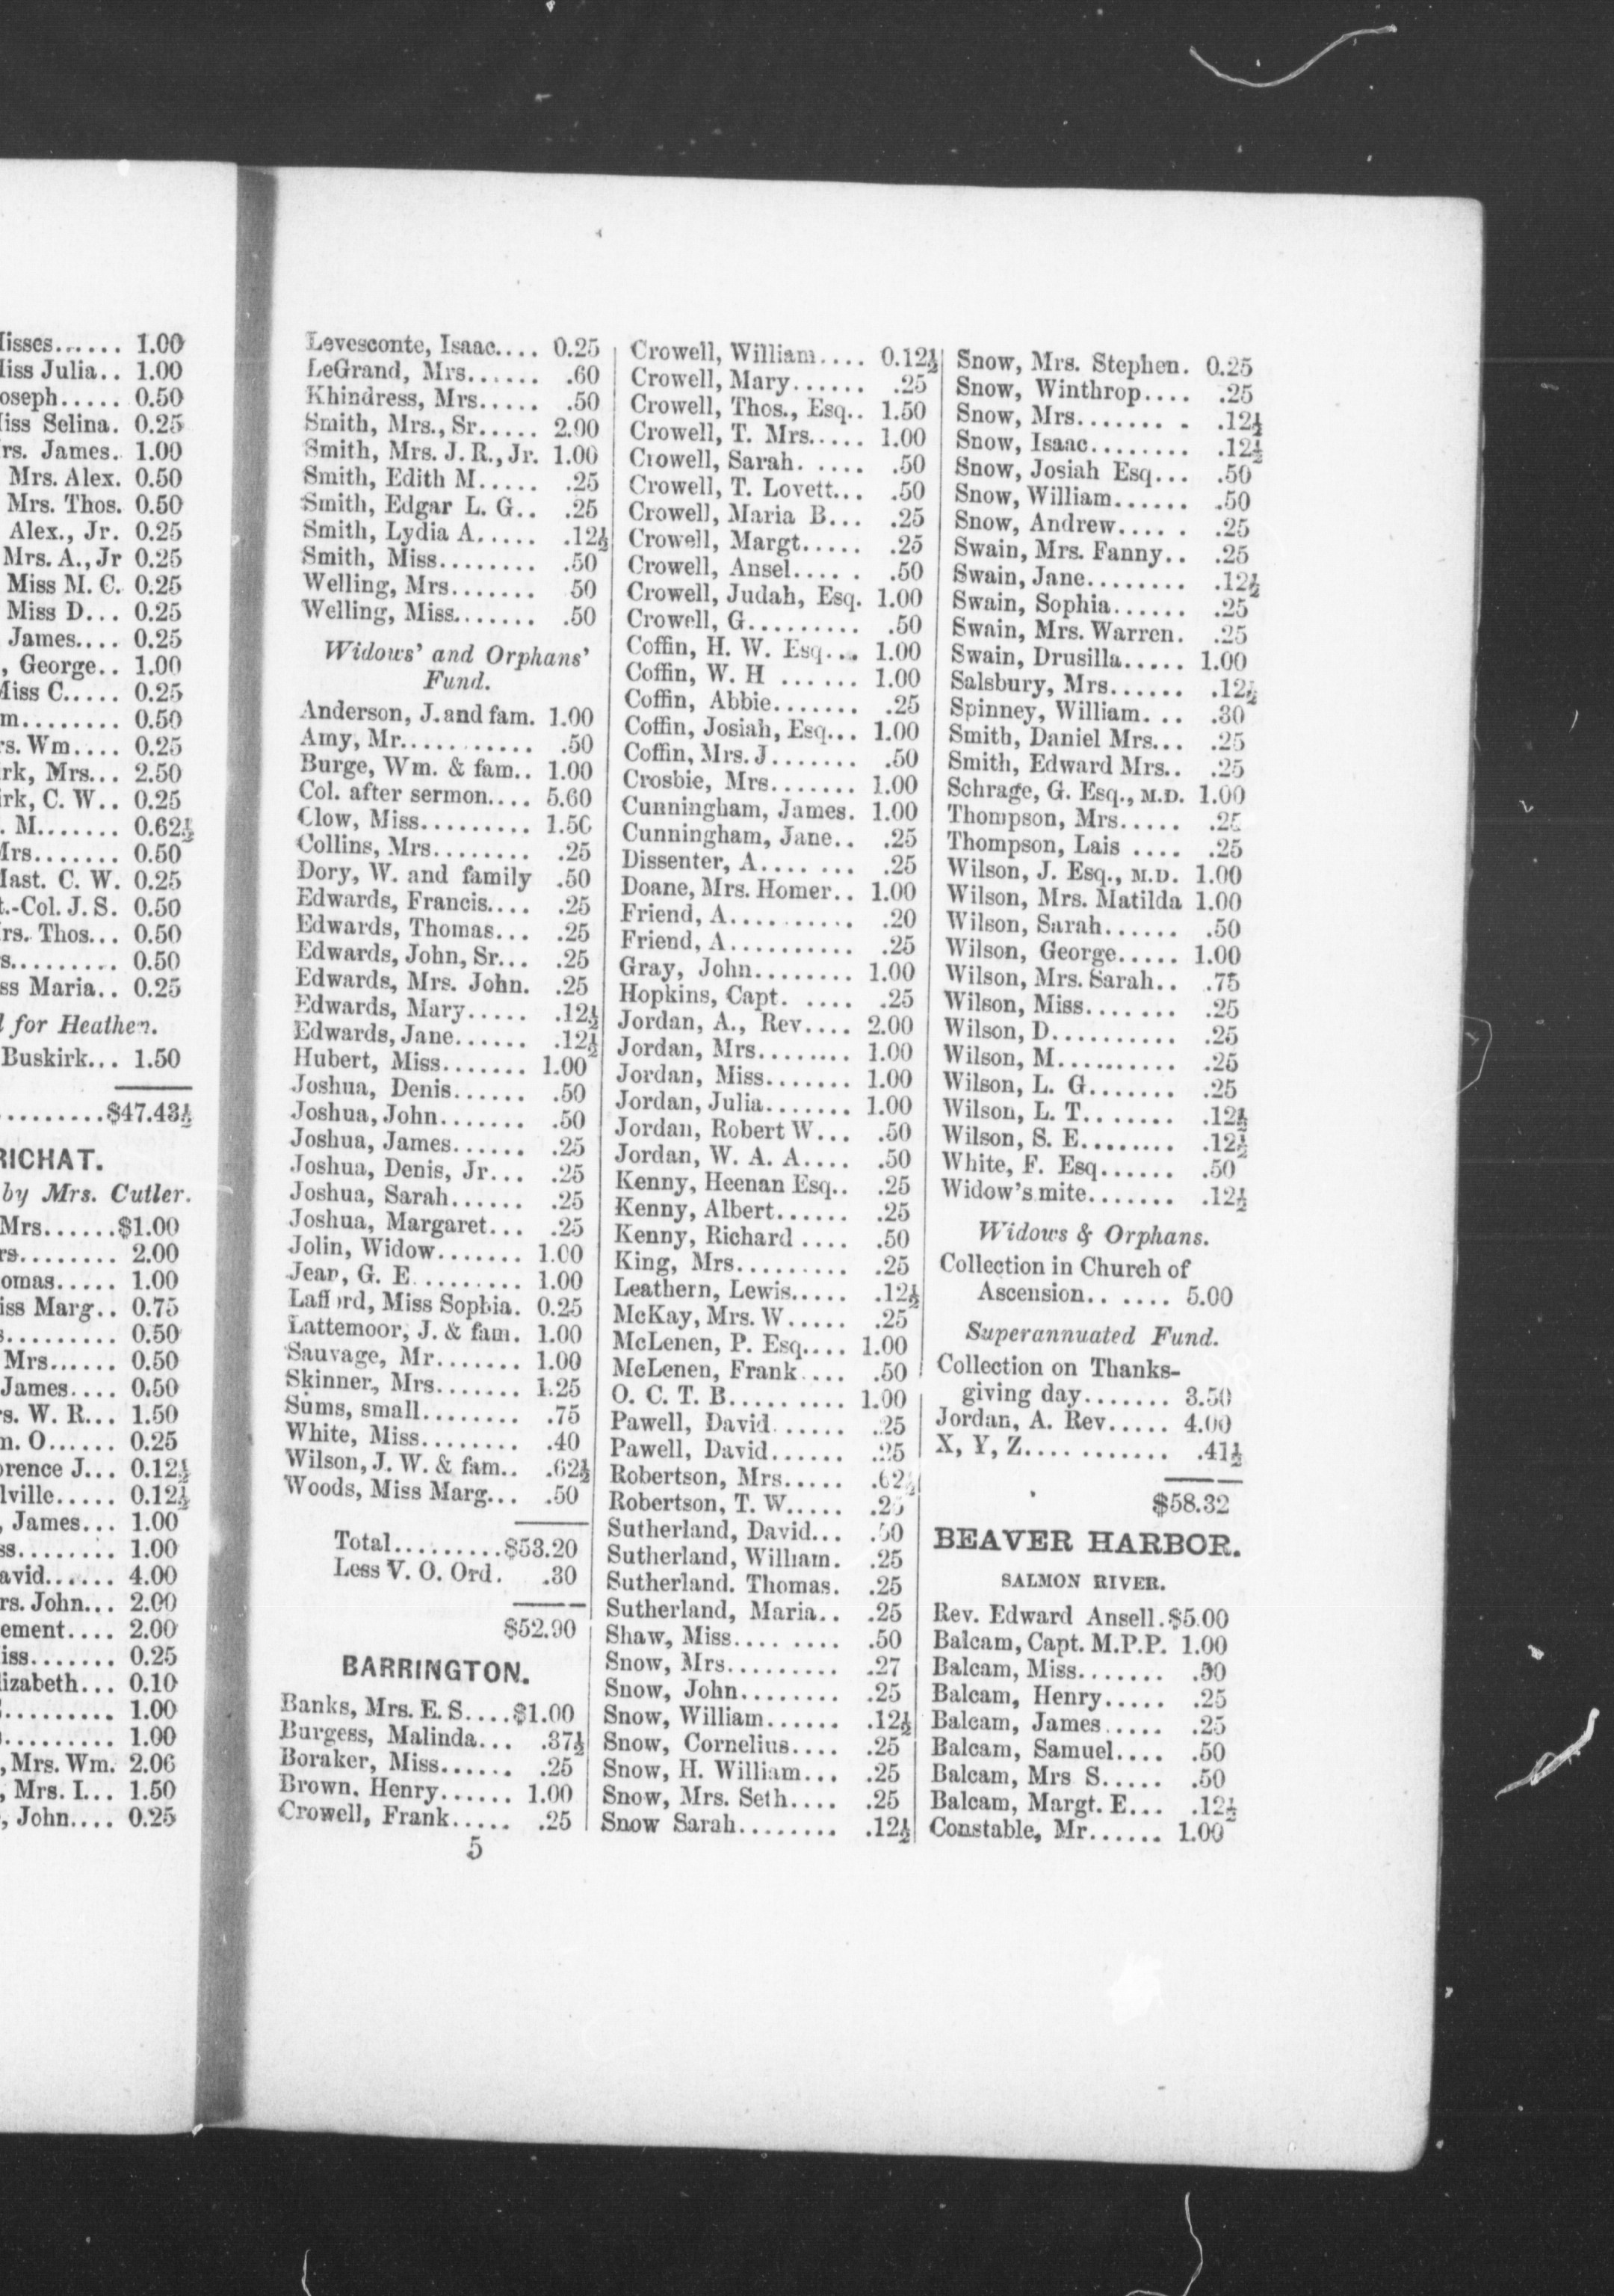 Misses...... 1.00
Miss Julia.. 1.00
Joseph..... 0.50
Miss Selina. 0.25
rs. James. 1.00
Mrs. Alex. 0.50
Mrs. Thos. 0.50
Alex., Jr. 0.25
Mrs. A., Jr 0.25
Miss M. C. 0.25
Miss D... 0.25
James.... 0.25
, George.. 1.00
Miss C..... 0.25
m........ 0.50
rs. Wm.... 0.25
irk, Mrs... 2.50
irk, C. W.. 0.25
. M....... 0.62½
Mrs....... 0.50
Mast. C. W. 0.25
t.-Col. J. S. 0.50
rs. Thos... 0.50
s.......... 0.50
ss Maria.. 0.25
l for Heathen.
Buskirk... 1.50
.........$47.43½
RICHAT.
by Mrs. Cutler.
Mrs......$1.00
rs......... 2.00
omas..... 1.00
iss Marg.. 0.75
s.......... 0.50
Mrs...... 0.50
James.... 0.50
rs. W. R... 1.50
m. O...... 0.25
orence J... 0.12½
lville..... 0.12½
, James... 1.00
ss......... 1.00
avid...... 4.00
rs. John... 2.00
ement.... 2.00
iss....... 0.25
lizabeth... 0.10
.......... 1.00
.......... 1.00
, Mrs. Wm. 2.06
, Mrs. I... 1.50
, John.... 0.25
Levesconte, Isaac.... 0.25
LeGrand, Mrs...... .60
Khindress, Mrs..... .50
Smith, Mrs., Sr..... 2.00
Smith, Mrs. J. R., Jr. 1.00
Smith, Edith M..... .25
Smith, Edgar L. G.. .25
Smith, Lydia A..... .12½
Smith, Miss........ .50
Welling, Mrs....... 50
Welling, Miss....... .50
Widows' and Orphans'
Fund.
Anderson, J. and fam. 1.00
Amy, Mr........... .50
Burge, Wm. & fam.. 1.00
Col. after sermon.... 5.60
Clow, Miss......... 1.50
Collins, Mrs........ .25
Dory, W. and family .50
Edwards, Francis.... .25
Edwards, Thomas... .25
Edwards, John, Sr... .25
Edwards, Mrs. John. .25
Edwards, Mary..... .12½
Edwards, Jane...... .12½
Hubert, Miss....... 1.00
Joshua, Denis...... .50
Joshua, John....... .50
Joshua, James...... .25
Joshua, Denis, Jr... .25
Joshua, Sarah...... .25
Joshua, Margaret... .25
Jolin, Widow....... 1.00
Jean, G. E......... 1.00
Lafford, Miss Sophia. 0.25
Lattemoor, J. & fam. 1.00
Sauvage, Mr....... 1.00
Skinner, Mrs....... 1.25
Sums, small........ .75
White, Miss........ .40
Wilson, J. W. & fam.. .62½
Woods, Miss Marg... .50
Total.........$53.20
Less V. O. Ord. .30
$52.90
BARRINGTON.
Banks, Mrs. E. S....$1.00
Burgess, Malinda... .37½
Boraker, Miss...... .25
Brown, Henry...... 1.00
Crowell, Frank..... .25
5
Crowell, William.... 0.12½
Crowell, Mary...... .25
Crowell, Thos., Esq.. 1.50
Crowell, T. Mrs..... 1.00
Crowell, Sarah. ..... .50
Crowell, T. Lovett... .50
Crowell, Maria B... .25
Crowell, Margt..... .25
Crowell, Ansel.... . .50
Crowell, Judah, Esq. 1.00
Crowell, G......... .50
Coffin, H. W. Esq... 1.00
Coffin, W. H ...... 1.00
Coffin, Abbie....... .25
Coffin, Josiah, Esq... 1.00
Coffin, Mrs. J....... .50
Crosbie, Mrs....... 1.00
Cunningham, James. 1.00
Cunningham, Jane.. .25
Dissenter, A.... ... .25
Doane, Mrs. Homer.. 1.00
Friend, A.......... .20
Friend, A.......... .25
Gray, John........ 1.00
Hopkins, Capt. .... .25
Jordan, A., Rev.... 2.00
Jordan, Mrs........ 1.00
Jordan, Miss....... 1.00
Jordan, Julia....... 1.00
Jordan, Robert W... .50
Jordan, W. A. A.... .50
Kenny, Heenan Esq.. .25
Kenny, Albert...... .25
Kenny, Richard .... .50
King, Mrs......... .25
Leathern, Lewis..... .12½
McKay, Mrs. W..... .25
McLenen, P. Esq.... 1.00
McLenen, Frank.... .50
O. C. T. B......... 1.00
Pawell, David...... .25
Pawell, David...... .25
Robertson, Mrs..... .62½
Robertson, T. W..... .25
Sutherland, David... .50
Sutherland, William. .25
Sutherland. Thomas. .25
Sutherland, Maria.. .25
Shaw, Miss.... .... .50
Snow, Mrs......... .27
Snow, John........ .25
Snow, William...... .12½
Snow, Cornelius.... .25
Snow, H. William... .25
Snow, Mrs. Seth.... .25
Snow Sarah........ .12½
Snow, Mrs. Stephen. 0.25
Snow, Winthrop.... .25
Snow, Mrs....... . .12½
Snow, Isaac........ .12½
Snow, Josiah Esq... .50
Snow, William...... .50
Snow, Andrew.... . .25
Swain, Mrs. Fanny.. .25
Swain, Jane........ .12½
Swain, Sophia...... .25
Swain, Mrs. Warren. .25
Swain, Drusilla..... 1.00
Salsbury, Mrs...... .12½
Spinney, William. .. .30
Smith, Daniel Mrs... .25
Smith, Edward Mrs.. .25
Schrage, G. Esq., M.D. 1.00
Thompson, Mrs..... .25
Thompson, Lais .... .25
Wilson, J. Esq., M.D. 1.00
Wilson, Mrs. Matilda 1.00
Wilson, Sarah...... .50
Wilson, George..... 1.00
Wilson, Mrs. Sarah.. .75
Wilson, Miss....... .25
Wilson, D.......... .25
Wilson, M.......... .25
Wilson, L. G....... .25
Wilson, L. T........ .12½
Wilson, S. E........ .12½
White, F. Esq...... .50
Widow's mite....... .12½
Widows & Orphans.
Collection in Church of
Ascension.. .... 5.00
Superannuated Fund.
Collection on Thanks-
giving day....... 3.50
Jordan, A. Rev..... 4.00
X, Y, Z.... ....... .41½
$58.32
BEAVER HARBOR.
SALMON RIVER.
Rev. Edward Ansell.$5.00
Balcam, Capt. M.P.P. 1.00
Balcam, Miss....... .50
Balcam, Henry..... .25
Balcam, James..... .25
Balcam, Samuel.... .50
Balcam, Mrs S..... .50
Balcam, Margt. E... .12½
Constable, Mr...... 1.00